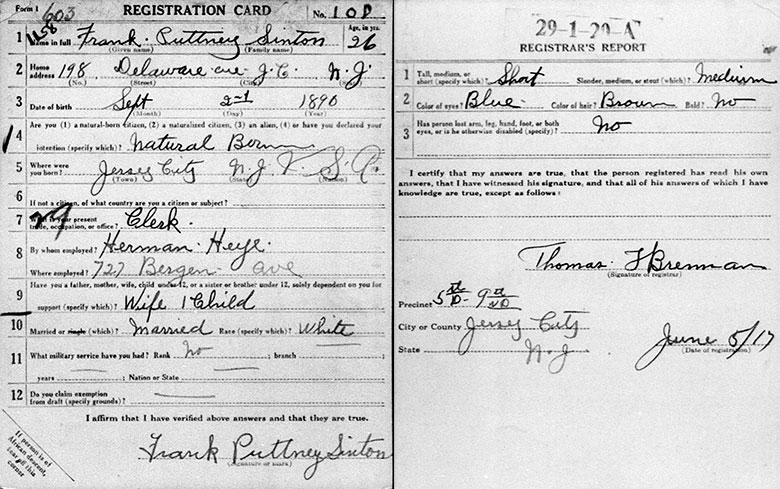 Form 1 603 REGISTRATION CARD No. 108
1158
1 Name in full Frank Puttney Sinton Age, in yrs. 26
(Given name) (Family name)
2 Home address 198 Delaware ave J.C. N.J.
(No.) (Street) (City) (State)
3 Date of birth Sept 1890
(Month) (Day) (Year)
4 Are you (1) a natural-born citizen, (2) a naturalized citizen, (3) an alien, (4) or have you declared your
intention (specify which)? Natural Born
5 Where were you born? Jersey City N.J. U.S.A.
(Town) (State) (Nation)
6 If not a citizen, of what country are you a citizen or subject?
29
7 What is your present trade, occupation, or office? Clerk
8 By whom employed? Herman Heye
Where employed? 727 Bergen ave
9 Have you a father, mother, wife, child under 12, or a sister or brother under 12, solely dependent on you for
support (specify which)? Wife 1 Child
10 Married or single (which)? Married Race (specify which)? White
11 What military service have you had? Rank No ; branch ;
years ; Nation or State
12 Do you claim exemption from draft (specify grounds)?
I affirm that I have verified above answers and that they are true.
Frank Puttney Sinton
(Signature or mark)
If person is of African descent, tear off this corner
29-1-29-A
REGISTRAR'S REPORT
1 Tall, medium, or short (specify which)? Short Slender, medium, or stout (which)? Medium
2 Color of eyes? Blue Color of hair? Brown Bald? No
3 Has person lost arm, leg, hand, foot, or both
eyes, or is he otherwise disabled (specify)? No
I certify that my answers are true, that the person registered has read his own
answers, that I have witnessed his signature, and that all of his answers of which I have
knowledge are true, except as follows:
Thomas F Brennan
(Signature of registrar)
Precinct 5th D - 9th
City or County Jersey City
State N.J. June 5/17
(Date of registration)